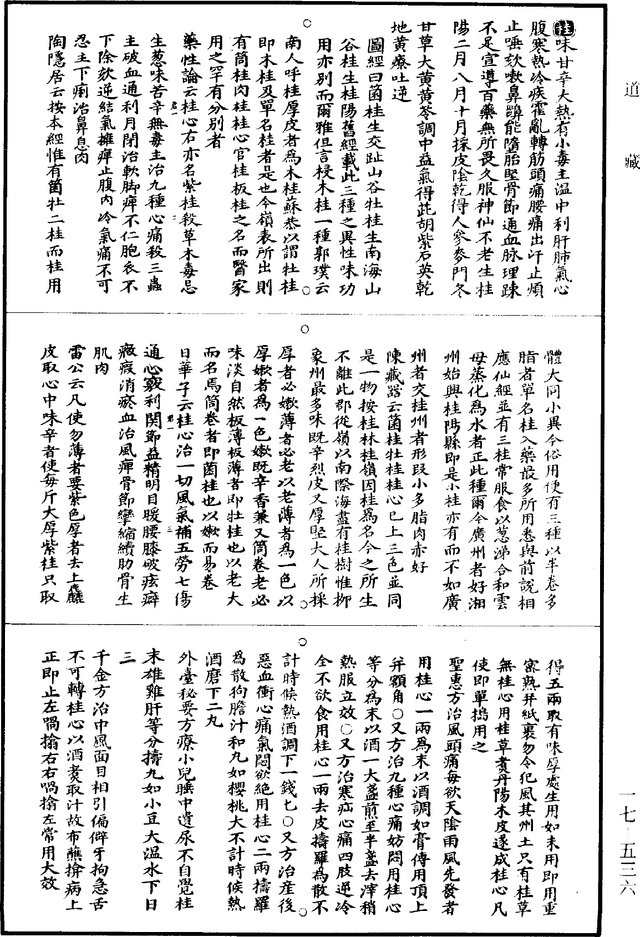 道藏
桂味甘辛大熱有小毒主溫中利肝肺氣心
腹寒熱冷疾霍亂轉筋頭痛腰痛出汗止煩
止唾欬嗽鼻齆能墮胎堅骨節通血脉理踈
不足宣導百藥無所畏久服神仙不老生桂
陽二月八月十月採皮陰乾得人參麥門冬
甘草大黃黃芩調中益氣得茈胡紫石英乾
地黃療吐逆
圖經曰箘桂生交趾山谷牡桂生南海山
谷桂生桂陽舊經載此三種之異性味功
用亦別而爾雅但言梫木桂一種郭璞云
南人呼桂厚皮者為木桂蘇恭以謂牡桂
即木桂及單名桂者是也今嶺表所出則
有筒桂肉桂桂心官桂板桂之名而醫家
用之罕有分別者
藥性論云桂心右亦名紫桂殺草木毒忌
生葱味苦辛無毒主治九種心痛殺三蟲
主破血通利月閉治軟脚痺不仁胞衣不
下除欬逆結氣擁痺止腹內冷氣痛不可
忍主下痢治鼻息肉
陶隱居云按本經惟有箘牡二桂而桂用
體大同小異今俗用便有三種以半卷多
脂者單名桂入藥最多所用悉與前說相
應仙經並有三桂常服食以葱涕合和雲
母蒸化為水者正此種爾今廣州者好湘
州始興桂陽縣即是小桂亦有而不如廣
州者交桂州者形段小多脂肉亦好
陳藏器云菌桂牡桂桂心已上三色並同
是一物按桂林桂嶺因桂為名今之所生
不離此郡從嶺以南際海盡有桂樹惟柳
象州最多味既辛烈皮又厚堅大人所採
厚者必嫩薄者必老以老薄者為一色以
厚嫩者為一色嫩既辛香兼又筒卷老必
味淡自然板薄板薄者即牡桂也以老大
而名馬筒卷者即菌桂也以嫩而易卷
日華子云桂心治一切風氣補五勞七傷
通心竅利關節益精明目暖腰膝破痃癖
癥瘕消瘀血治風痺骨節攣縮續肋骨生
肌肉
雷公云凡使勿薄者要紫色厚者去上麤
皮取心中味辛者使每斤大厚紫桂只取
得五兩取有味厚處生用如末用即用重
密熟并紙裹勿令犯風其州土只有桂草
無桂心用桂草煮丹陽木皮遂成桂心凡
使即單搗用之
聖惠方治風頭痛每欲天陰雨風先發者
用桂心一兩為末以酒調如膏傅用頂上
并額角○又方治九種心痛妨悶用桂心
等分為末以酒一大盞煎至半盞去滓稍
熱服立效○又方治寒疝心痛四肢逆冷
全不欲食用桂心一兩去皮擣羅為散不
計時候熱酒調下一錢匕○又方治產後
惡血衝心痛氣悶欲絕用桂心二兩擣羅
為散狗膽汁和丸如櫻桃大不計時候熱
酒磨下二丸
外臺秘要方療小兒睡中遺尿不自覺桂
末雄雞肝等分擣丸如小豆大溫水下日
三
千金方治中風面目相引偏僻牙拘急舌
不可轉桂心以酒煮取汁故布蘸揜病上
正即止左喎揜右右喎揜左常用大效
一七·五三六